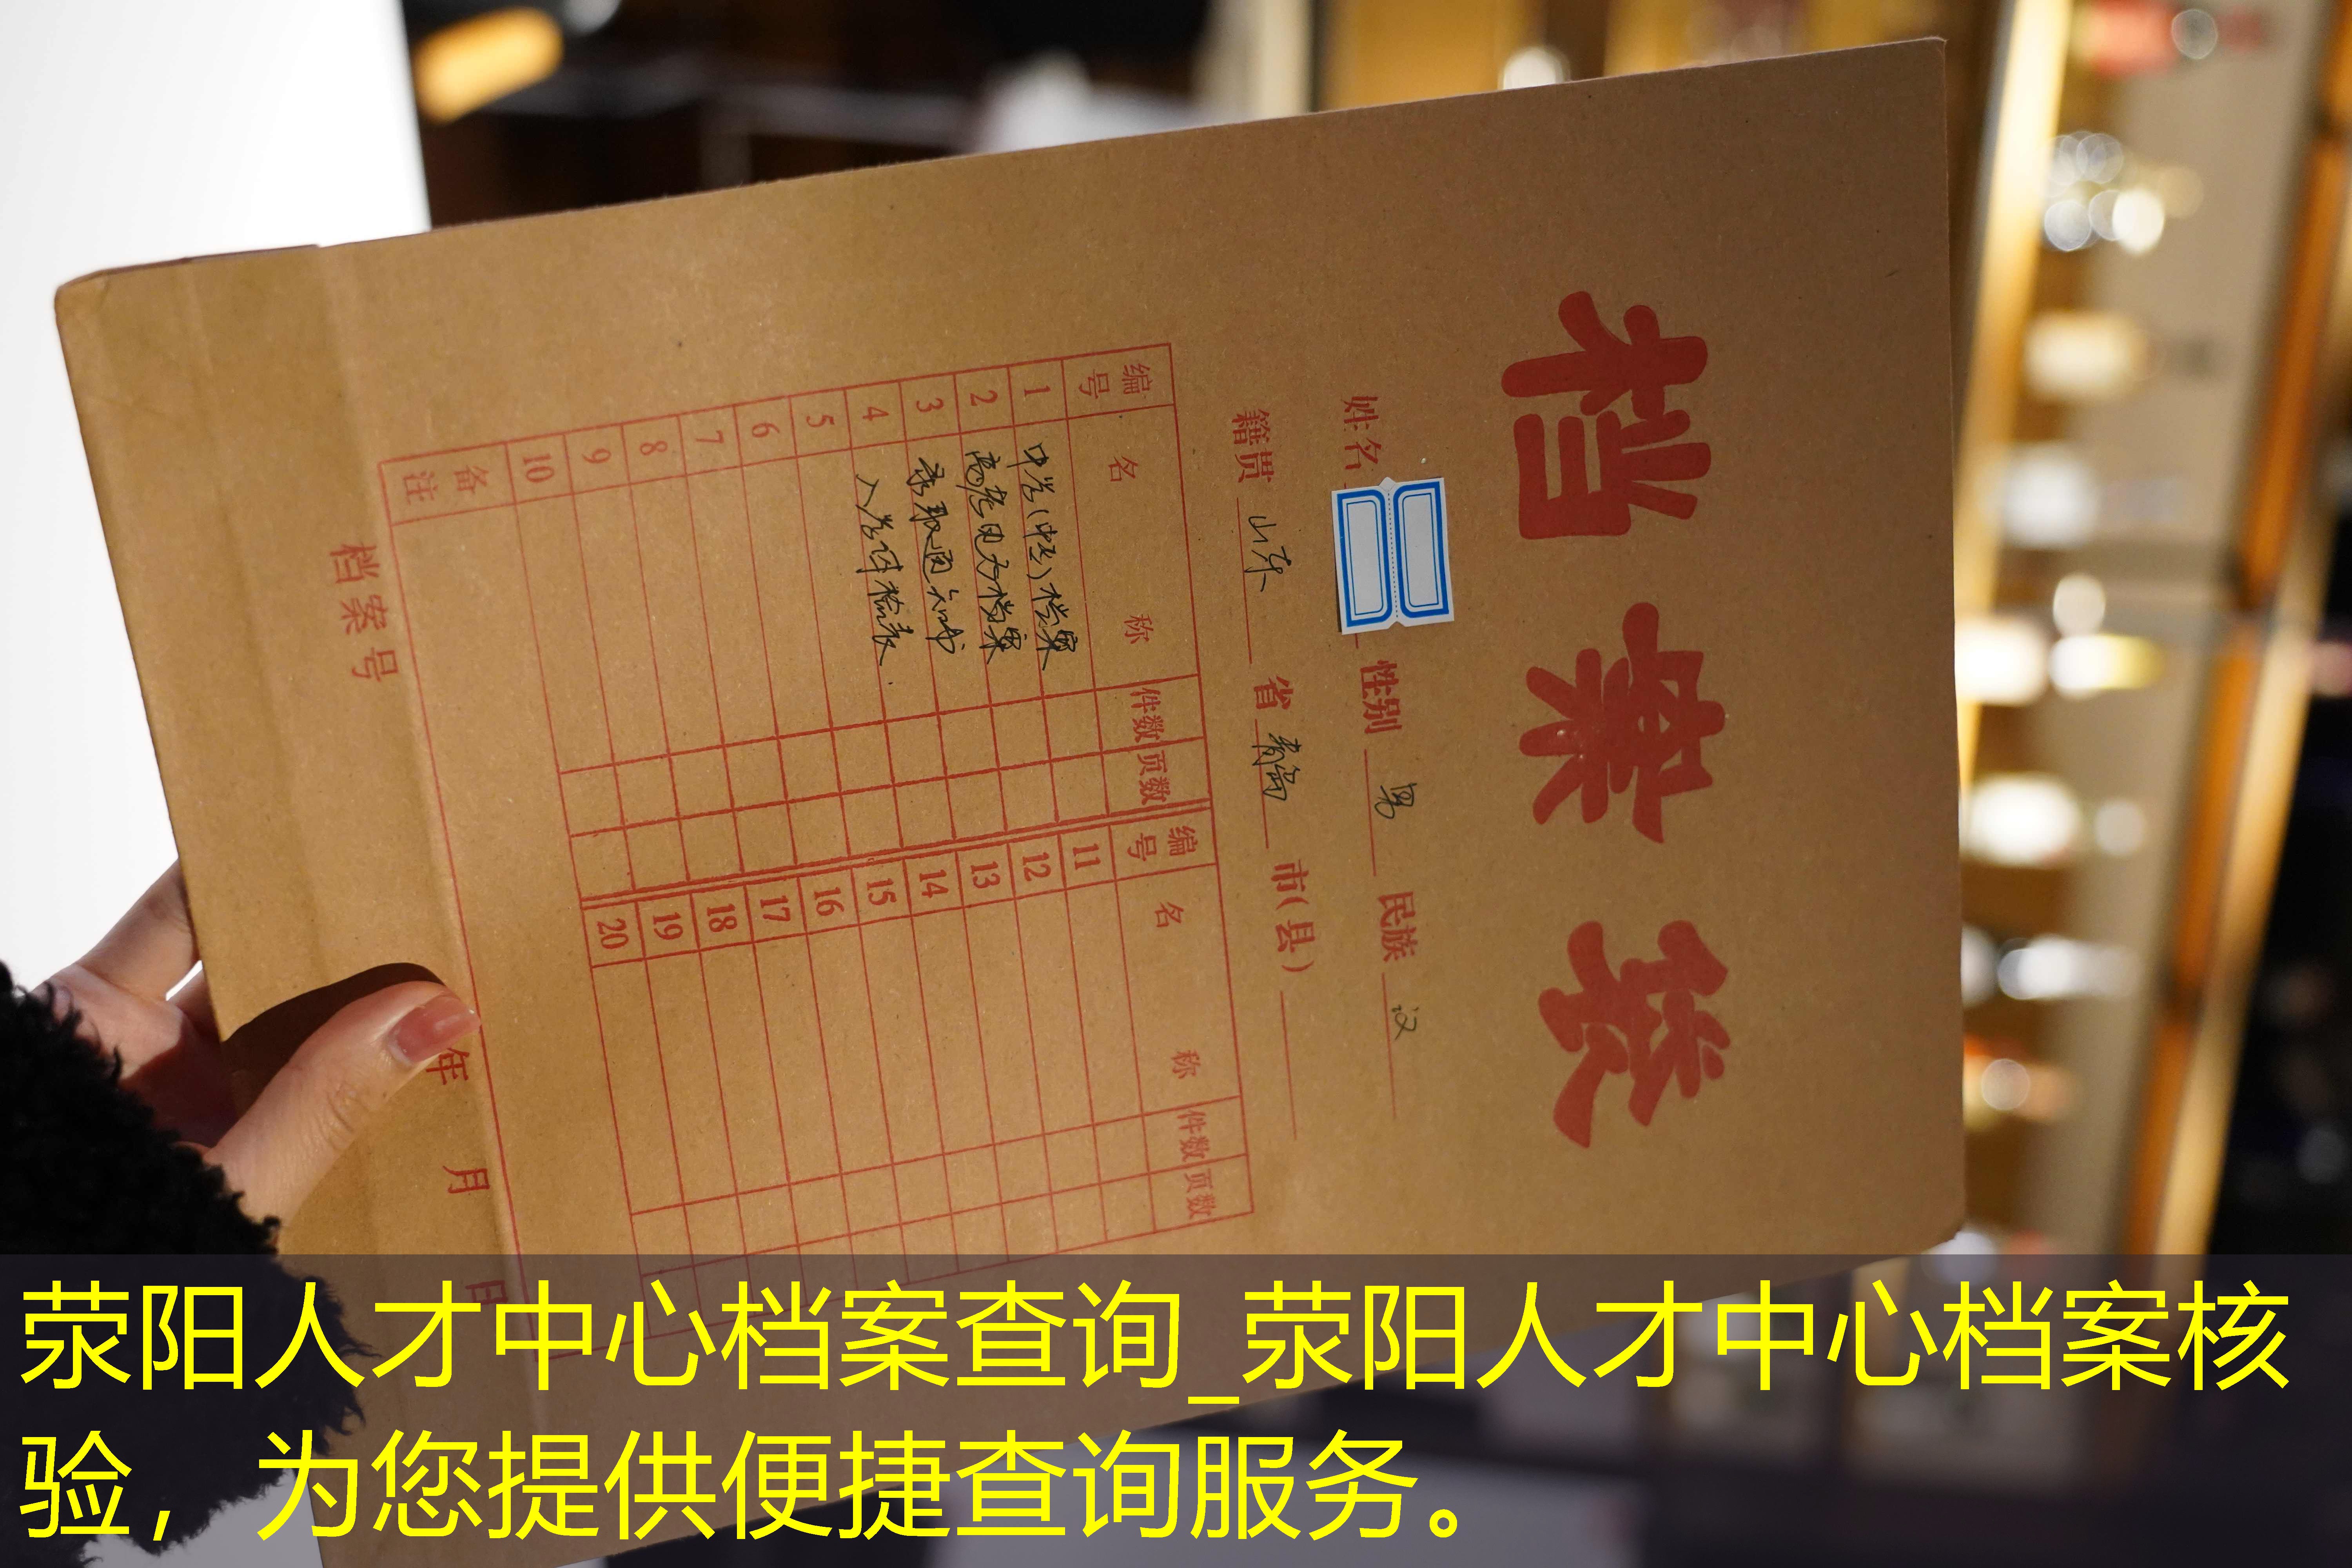 档案袋
姓名 性别 男 民族 汉
籍贯 山东 省 青岛 市(县)
编号 名称 件数 页数 编号 名称 件数 页数
1 中学(中专)档案 11
2 高考电子档案 12
3 录取通知书 13
4 入学体检表 14
5 15
6 16
7 17
8 18
9 19
10 20
备注
档案号 年 月 日
荥阳人才中心档案查询_荥阳人才中心档案核
验，为您提供便捷查询服务。